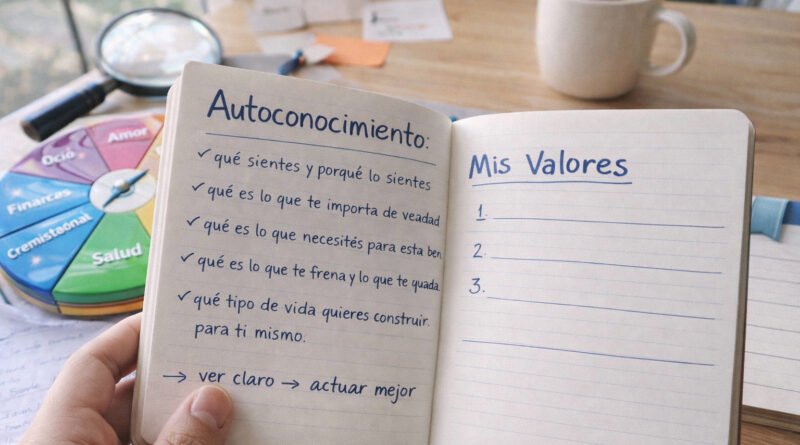 Autoconocimiento:
✓ qué sientes y porqué lo sientes
✓ qué es lo que te importa de veadad
✓ qué es lo que necesités para esta ben
✓ qué es lo que te frena y lo que te quada
✓ qué tipo de vida quieres construir.
para ti mismo.
→ ver claro → actuar mejor
Mis Valores
1.
2.
3.
Amor
Ocio
Finarcas
Cremistaonal
Salud